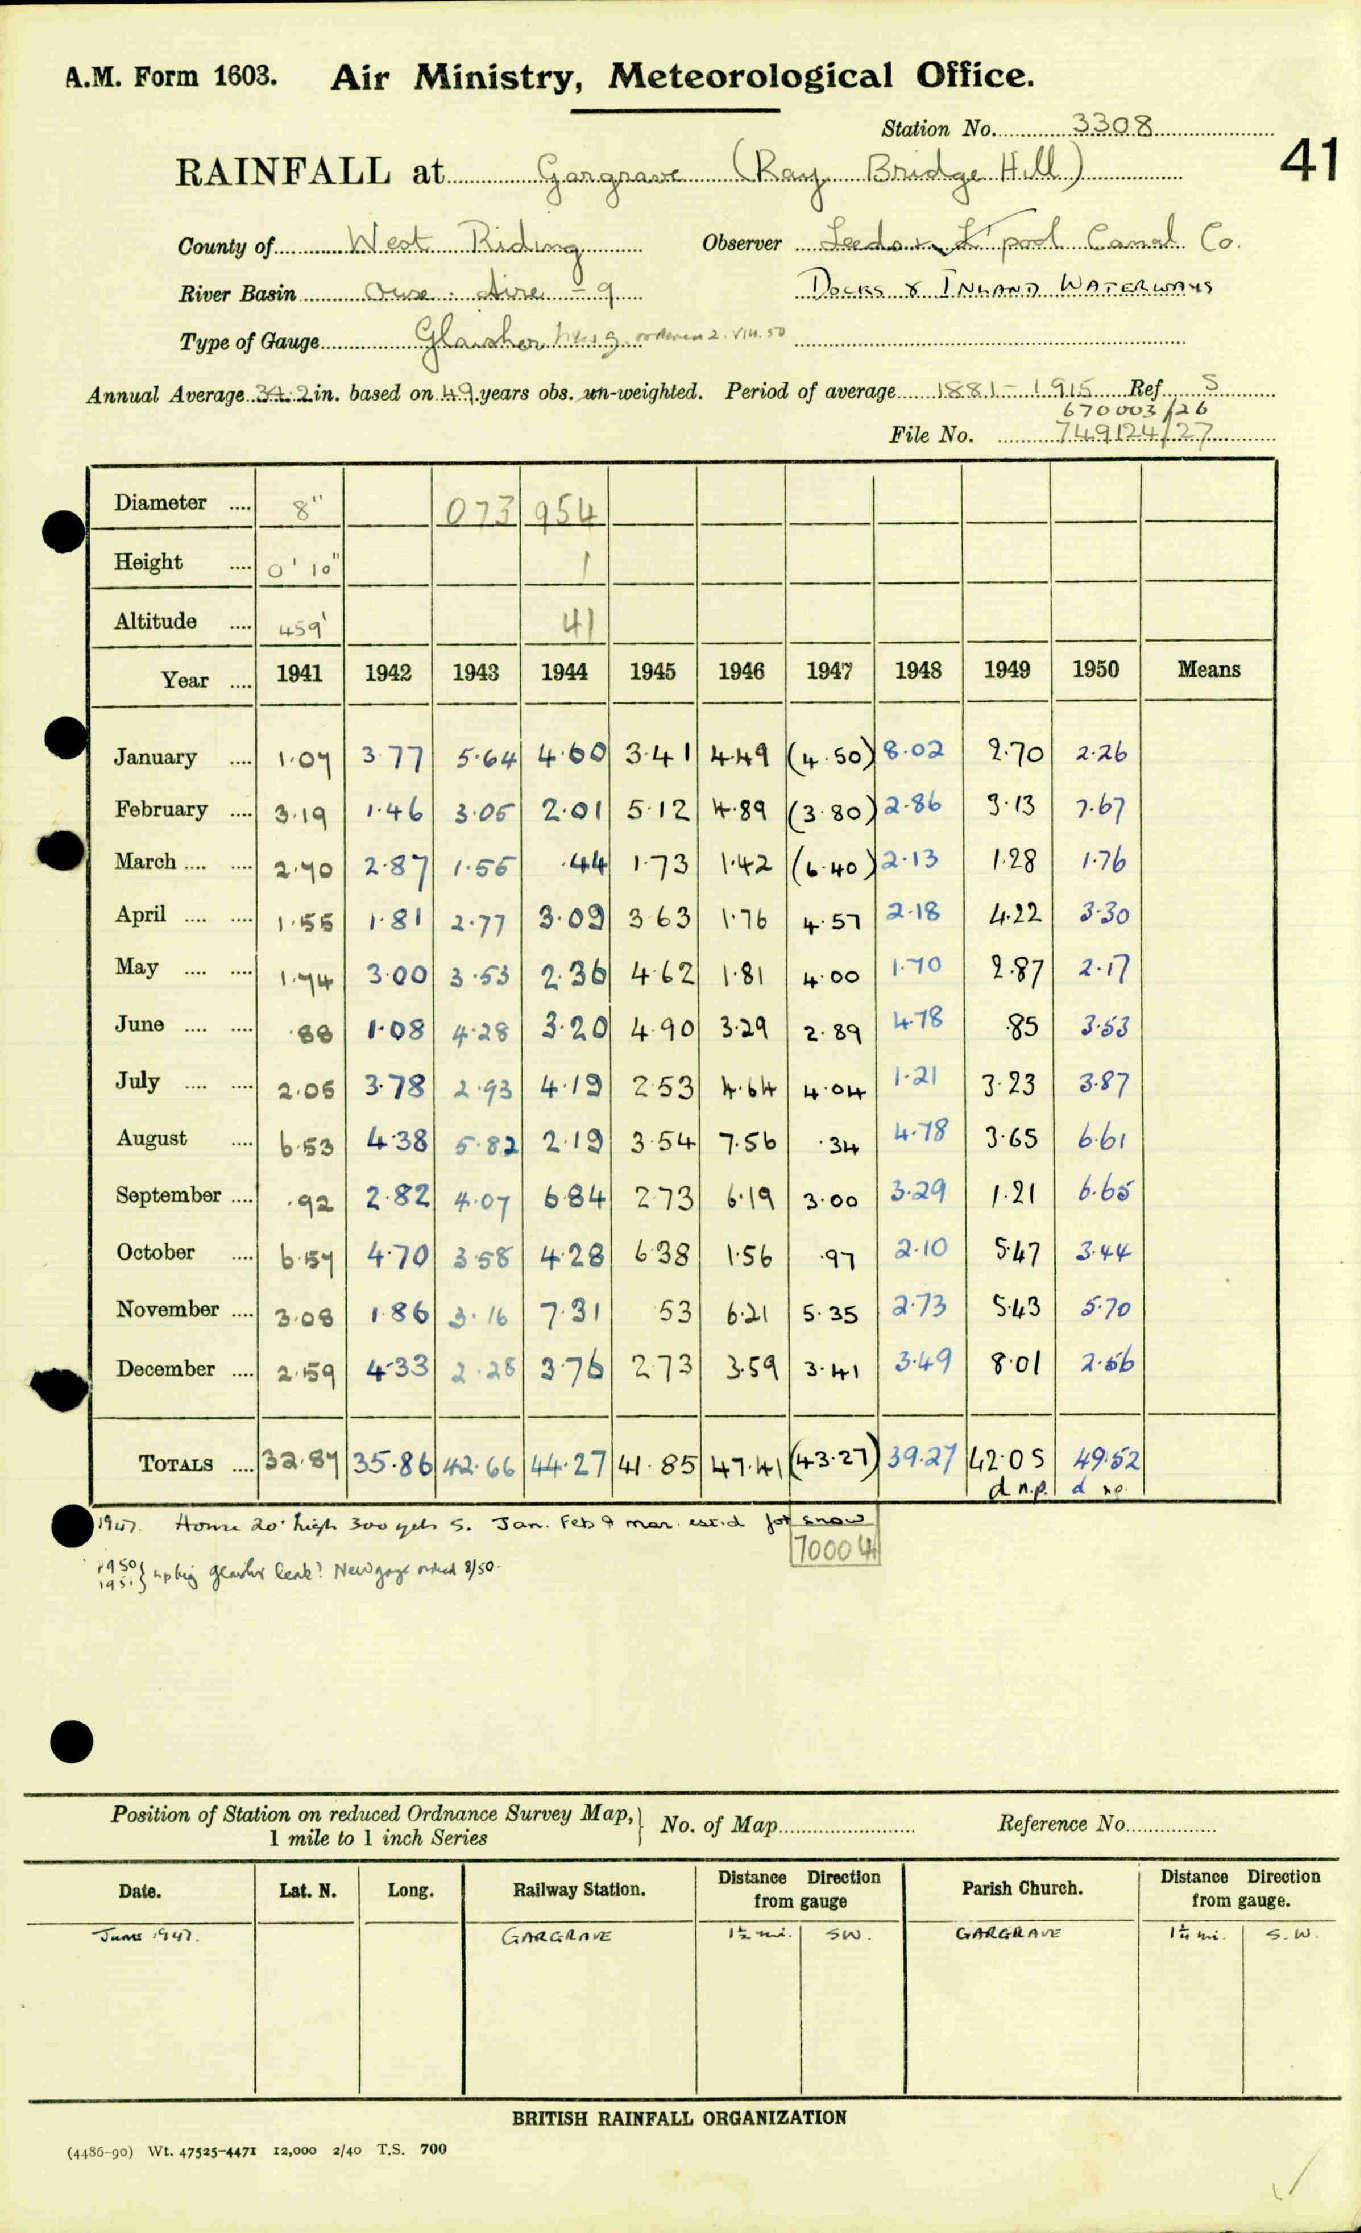 A.M. Form 1603. Air Ministry, Meteorological Office.
Station No. 3308
41
RAINFALL at Gargrave (Ray Bridge Hill)
County of West Riding Observer Leeds & L'pool Canal Co.
River Basin Ouse. Aire - 9 Docks & Inland Waterways
Type of Gauge Glaisher 2.VIII.50
Annual Average 34.2 in. based on 49 years obs. un-weighted. Period of average 1881-1915 Ref S
670003/26
File No. 749124/27
Diameter .... 8" 073 954
Height .... 0' 10" 1
Altitude .... 459' 41
Year .... 1941 1942 1943 1944 1945 1946 1947 1948 1949 1950 Means
January .... 1.07 3.77 5.64 4.60 3.41 4.49 (4.50) 8.02 2.70 2.26
February .... 3.19 1.46 3.05 2.01 5.12 4.89 (3.80) 2.86 3.13 7.67
March .... .... 2.70 2.87 1.55 .44 1.73 1.42 (6.40) 2.13 1.28 1.76
April .... .... 1.55 1.81 2.77 3.09 3.63 1.76 4.57 2.18 4.22 3.30
May .... .... 1.74 3.00 3.53 2.36 4.62 1.81 4.00 1.70 2.87 2.17
June .... .... .88 1.08 4.28 3.20 4.90 3.29 2.89 4.78 .85 3.53
July .... .... 2.05 3.78 2.93 4.19 2.53 4.64 4.04 1.21 3.23 3.87
August .... 6.53 4.38 5.82 2.19 3.54 7.56 .34 4.78 3.65 6.61
September .... .92 2.82 4.07 6.84 2.73 6.19 3.00 3.29 1.21 6.65
October .... 6.57 4.70 3.58 4.28 6.38 1.56 .97 2.10 5.47 3.44
November .... 3.08 1.86 3.16 7.31 53 6.21 5.35 2.73 5.43 5.70
December .... 2.59 4.33 2.28 3.76 2.73 3.59 3.41 3.49 8.01 2.56
TOTALS .... 32.87 35.86 42.66 44.27 41.85 47.41 (43.27) 39.27 42.05 49.52
d n.p. d n.p.
1947. House 20' high 300 yds S. Jan. Feb & Mar. est.d for snow
70004
1950 } glaisher leak? New gage 8/50.
1951 }
Position of Station on reduced Ordnance Survey Map, } No. of Map Reference No.
1 mile to 1 inch Series
Date. Lat. N. Long. Railway Station. Distance Direction from gauge Parish Church. Distance Direction from gauge.
June 1947. GARGRAVE 1½ mi. SW. GARGRAVE 1¼ mi. S.W.
BRITISH RAINFALL ORGANIZATION
(4486-90) Wt. 47525-4471 12,000 2/40 T.S. 700